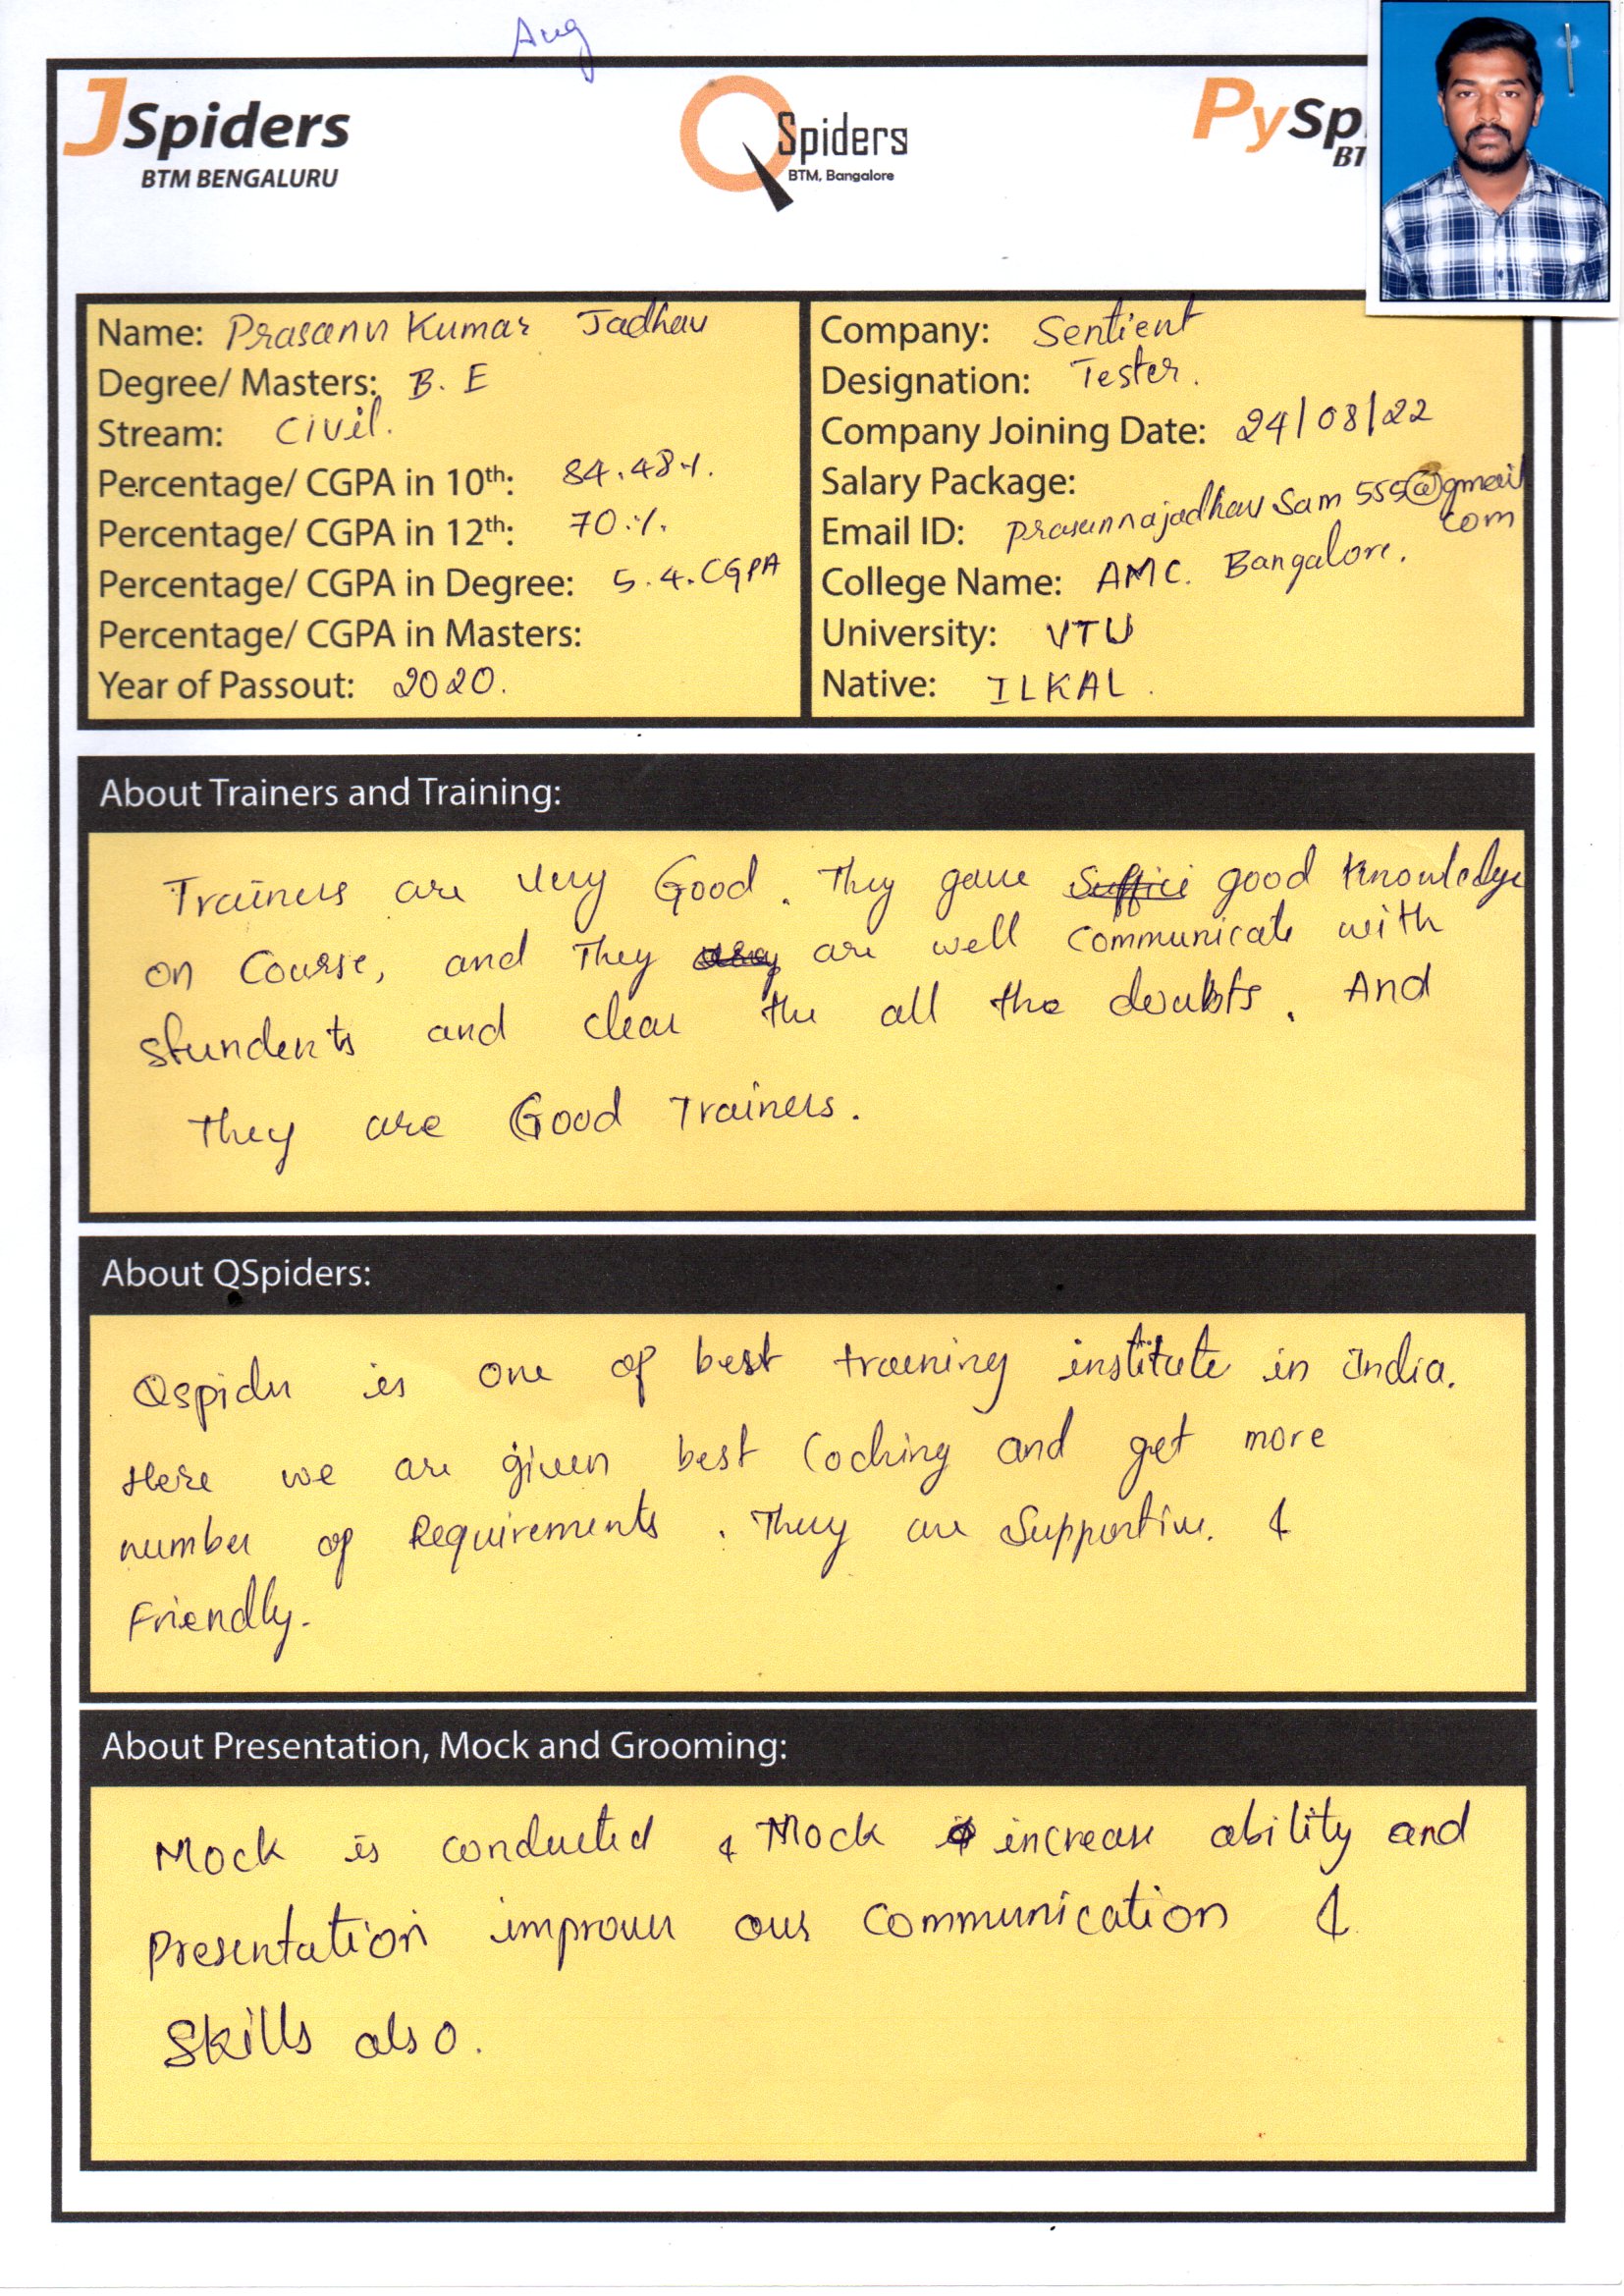 Aug
JSpiders
BTM BENGALURU
QSpiders
BTM, Bangalore
PySp
BT
Name: Prasann Kumar Jadhav
Degree/ Masters: B.E
Stream: Civil.
Percentage/ CGPA in 10th: 84.48%.
Percentage/ CGPA in 12th: 70%.
Percentage/ CGPA in Degree: 5.4.CGPA
Percentage/ CGPA in Masters:
Year of Passout: 2020.
Company: Sentient
Designation: Tester.
Company Joining Date: 24/08/22
Salary Package:
Email ID: prasannajadhavsam555@gmail
com
College Name: AMC. Bangalore.
University: VTU
Native: ILKAL.
About Trainers and Training:
Trainers are very Good. They gave good knowledge
on Course, and They are well communicate with
stundents and clear the all the doubts. And
They are Good Trainers.
About QSpiders:
Qspider is one of best training institute in india.
Here we are given best Coching and get more
number of Requirements. They are Supportive. &
Friendly.
About Presentation, Mock and Grooming:
Mock is conducted & Mock increase ability and
Presentation improves our communication &
Skills also.